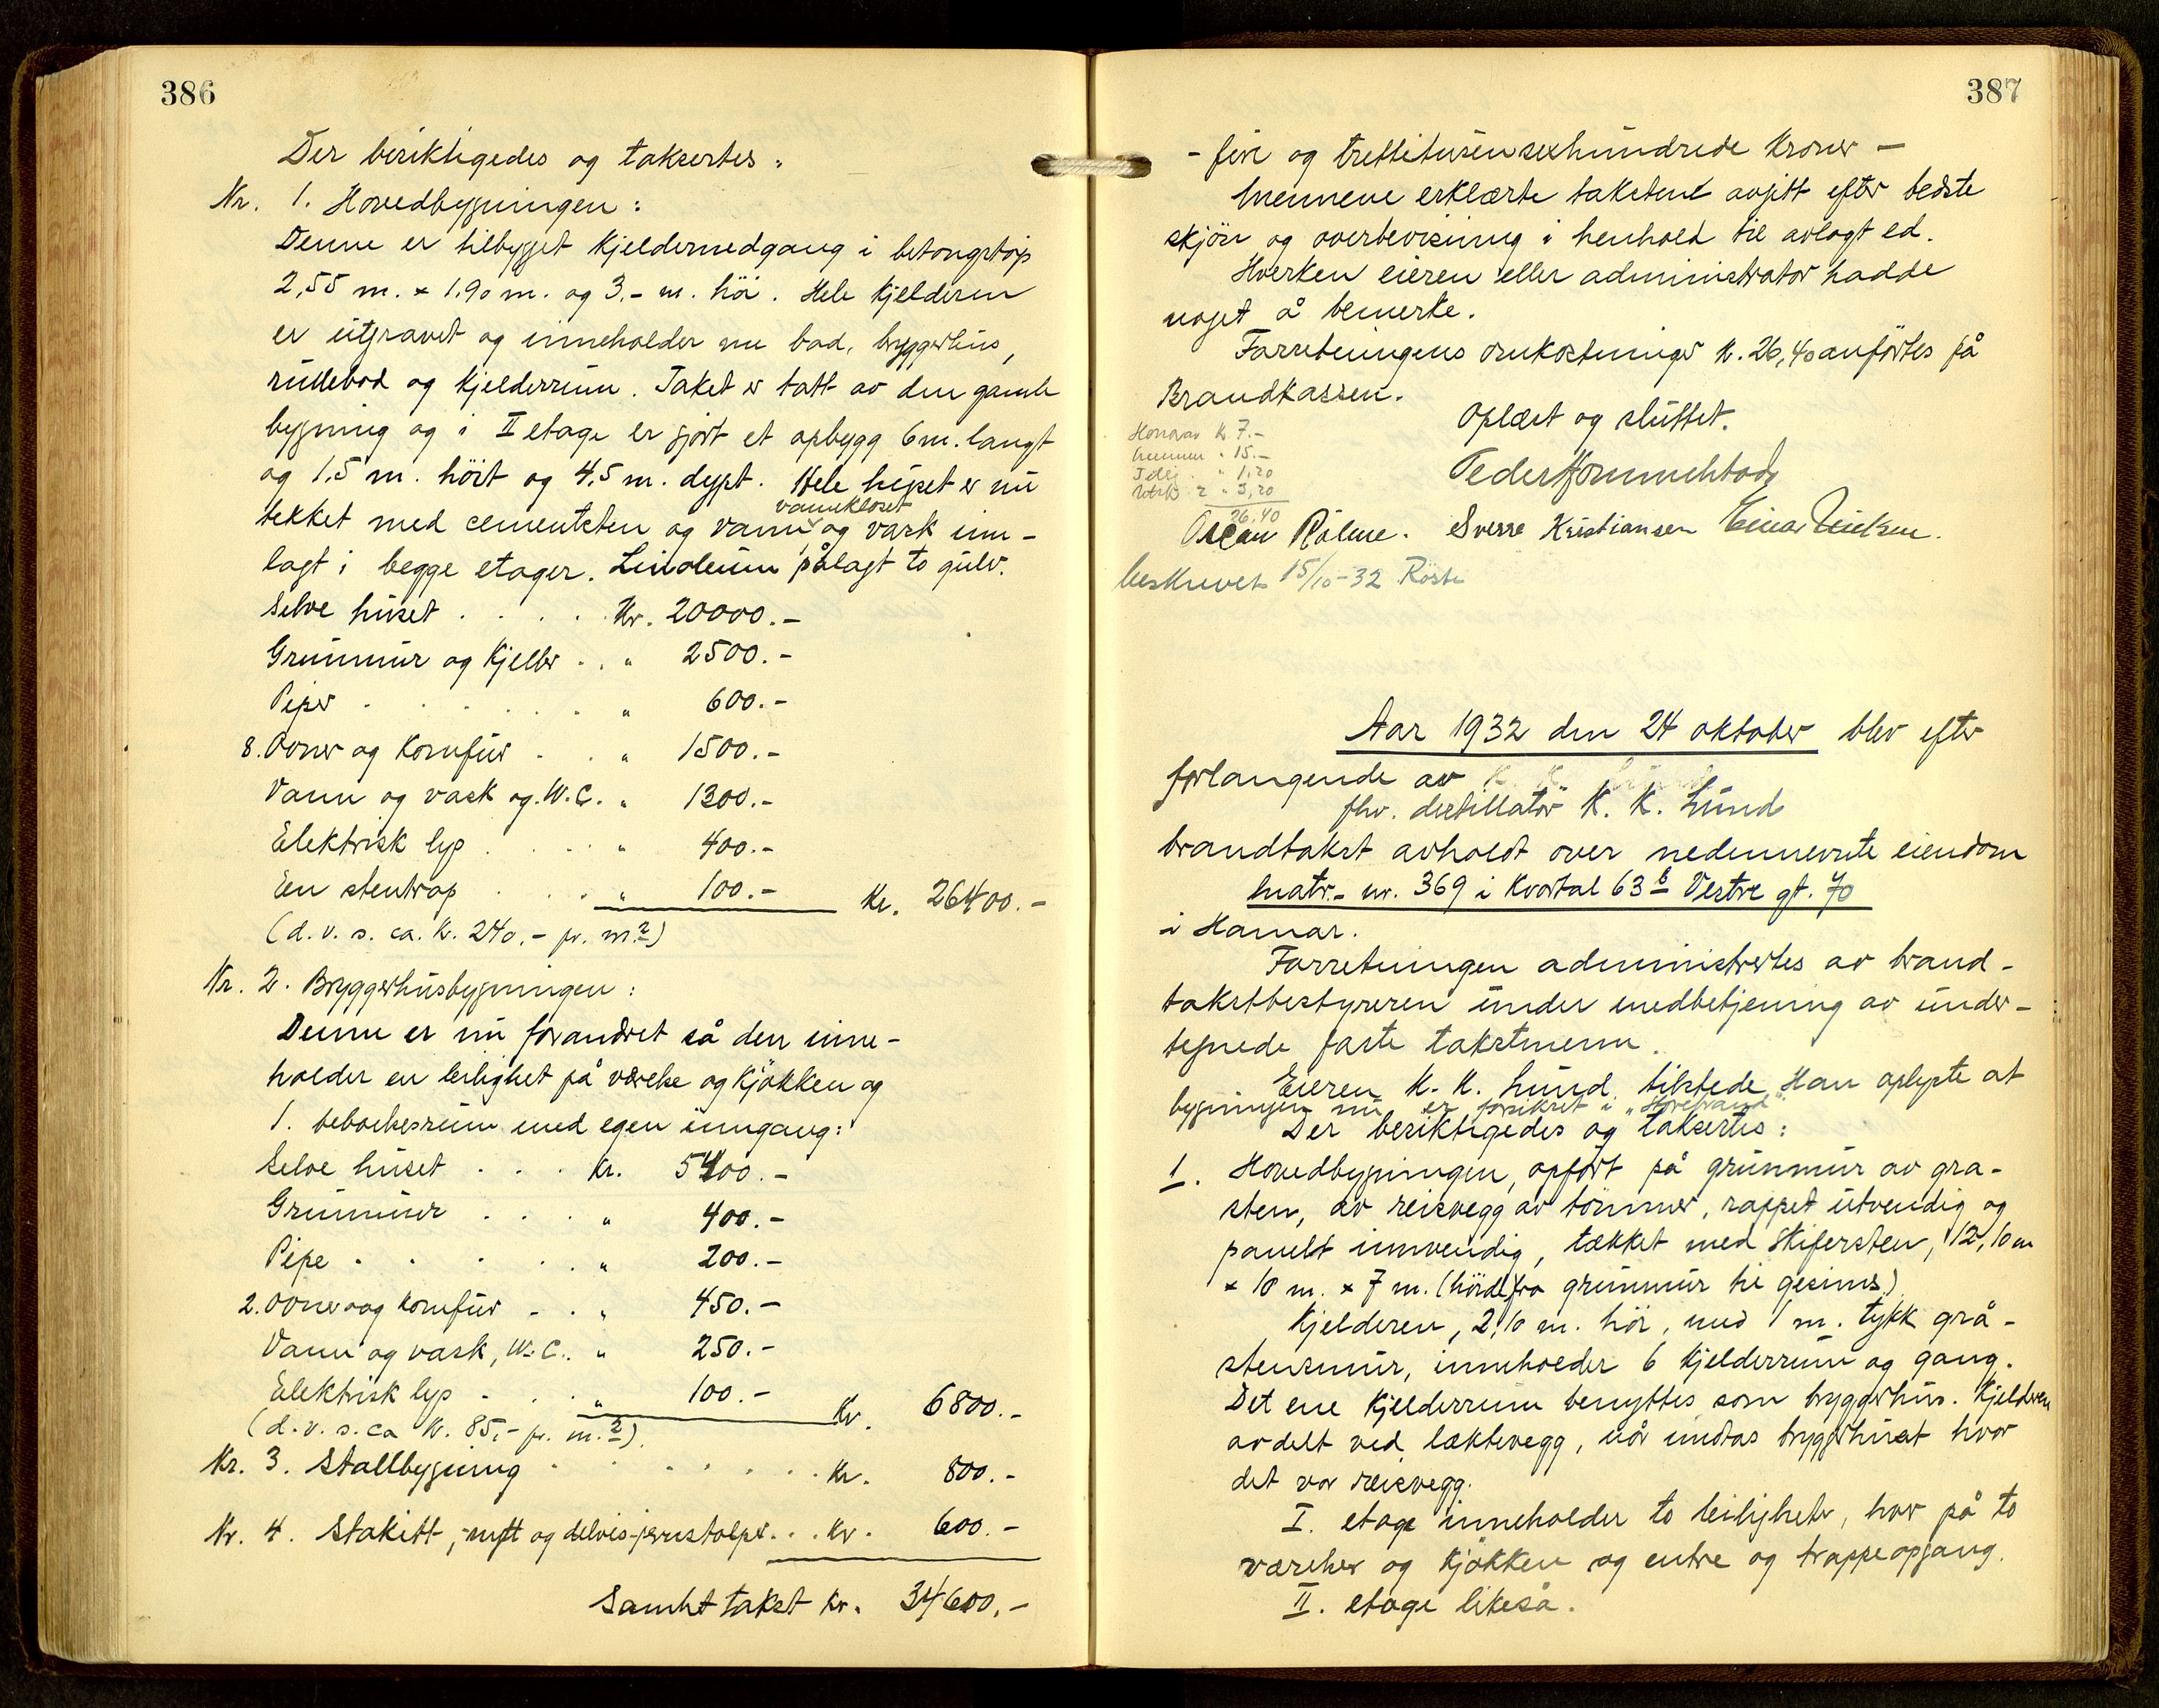 386
Der besiktigedes og taksertes:
Nr. 1. Hovedbygningen:
Denne er tilbygget kjeldernedgang i betongstøp
2,55 m. x 1.90 m. og 3,- m. höi. Hele kjelderen
er utgravet og inneholder nu bad, bryggerhus,
rullebod og kjelderrum. Taket er tatt av den gamle
bygning og i II etage er gjort et opbygg 6 m. langt
og 1,5 m. höit og 4,5 m. dypt. Hele huset er nu
vannkloset
tekket med cementsten og vann og vask inn-
lagt i begge etager. Linoleum pålagt to gulv.
Selve huset . . . . Kr. 20000.-
Grunmur og Kjeller . . " 2500.-
Piper . . . . . . " 600.-
8. Ovner og Komfur . . " 1500.-
Vann og vask og W.C. " 1300.-
Elektrisk lys . . . . " 400.-
Een stentrap . . . . " 100.- Kr. 26400.-
(d. v. s. ca. kr. 240,- pr. m.2)
Nr. 2. Bryggerhusbygningen:
Denne er nu forandret så den inne-
holder en leilighet på værelse og kjøkken og
1. beboelsesrum med egen inngang:
Selve huset . . . Kr. 5400.-
Grunmur . . . . " 400.-
Pipe . . . . . " 200.-
2. Ovner og komfur . . " 450.-
Vann og vask, W.C. . " 250.-
Elektrisk lys . . . " 100.- Kr. 6800.-
(d. v. s. ca kr. 85,- pr. m.2).
Nr. 3. Stallbygning . . . . . . . Kr. 800.-
Nr. 4. Stakitt, nytt og delvis jernstolper . . . Kr. 600.-
Samlet takst kr. 34600,-
387
- fire og trettitusensexhundrede Kroner -
Mennene erklærte taksten avgitt efter bedste
skjön og overbevisning i henhold til avlagt ed.
Hverken eieren eller administrator hadde
noget å bemerke.
Forretningens omkostninger kr. 26,40 anförtes på
Brandkassen.
Oplæst og sluttet.
Honorar kr 7.-
Mennene " 15.-
" 1,20
" 3,20
26.40
Sverre Kristiansen
beskrevet 15/10-32
Aar 1932 den 24 oktober blev efter
forlangende av
fhv. destillatør K. K. Lund
brandtakst avholdt over nedennevnte eiendom
Matr.- nr. 369 i Kvartal 63 b Vestre gt. 70
i Hamar.
Forretningen administrertes av brand-
takstbestyreren under medbetjening av under-
tegnede faste takstmenn.
Eieren K. K. Lund tilstede. Han oplyste at
bygningen nu er forsikret i
Der besiktigedes og taksertes:
1. Hovedbygningen, opfört på grunmur av gra-
sten, av reisvegg av tömmer, rappet utvendig og
panelt innvendig, tækket med Skifersten, 12,10 m
x 10 m. x 7 m. (höide fra grunmur til gesims)
Kjelderen, 2,10 m. höi, med 1 m. tykk grå-
stensmur, inneholder 6 kjelderrum og gang.
Det ene Kjelderrum benyttes som bryggerhus. Kjelderen
avdelt ved læktevegg, når undtas bryggerhuset hvor
det var reisvegg.
I. etage inneholder to leiligheter, hver på to
værelser og kjøkken og entre og trappeopgang.
II. etage likeså.